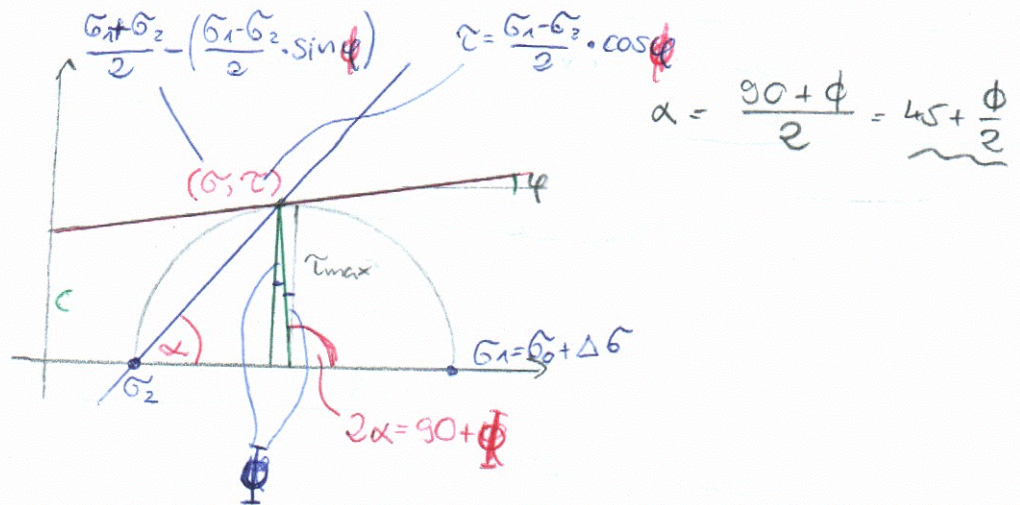 (σ1+σ2)/2 - ((σ1-σ2)/2 · sinϕ)
τ = (σ1-σ2)/2 · cosϕ
α = (90+ϕ)/2 = 45 + ϕ/2
(σ, τ)
φ
τmax
c
α
σ1=σ0+Δσ
σ2
2α=90+ϕ
ϕ